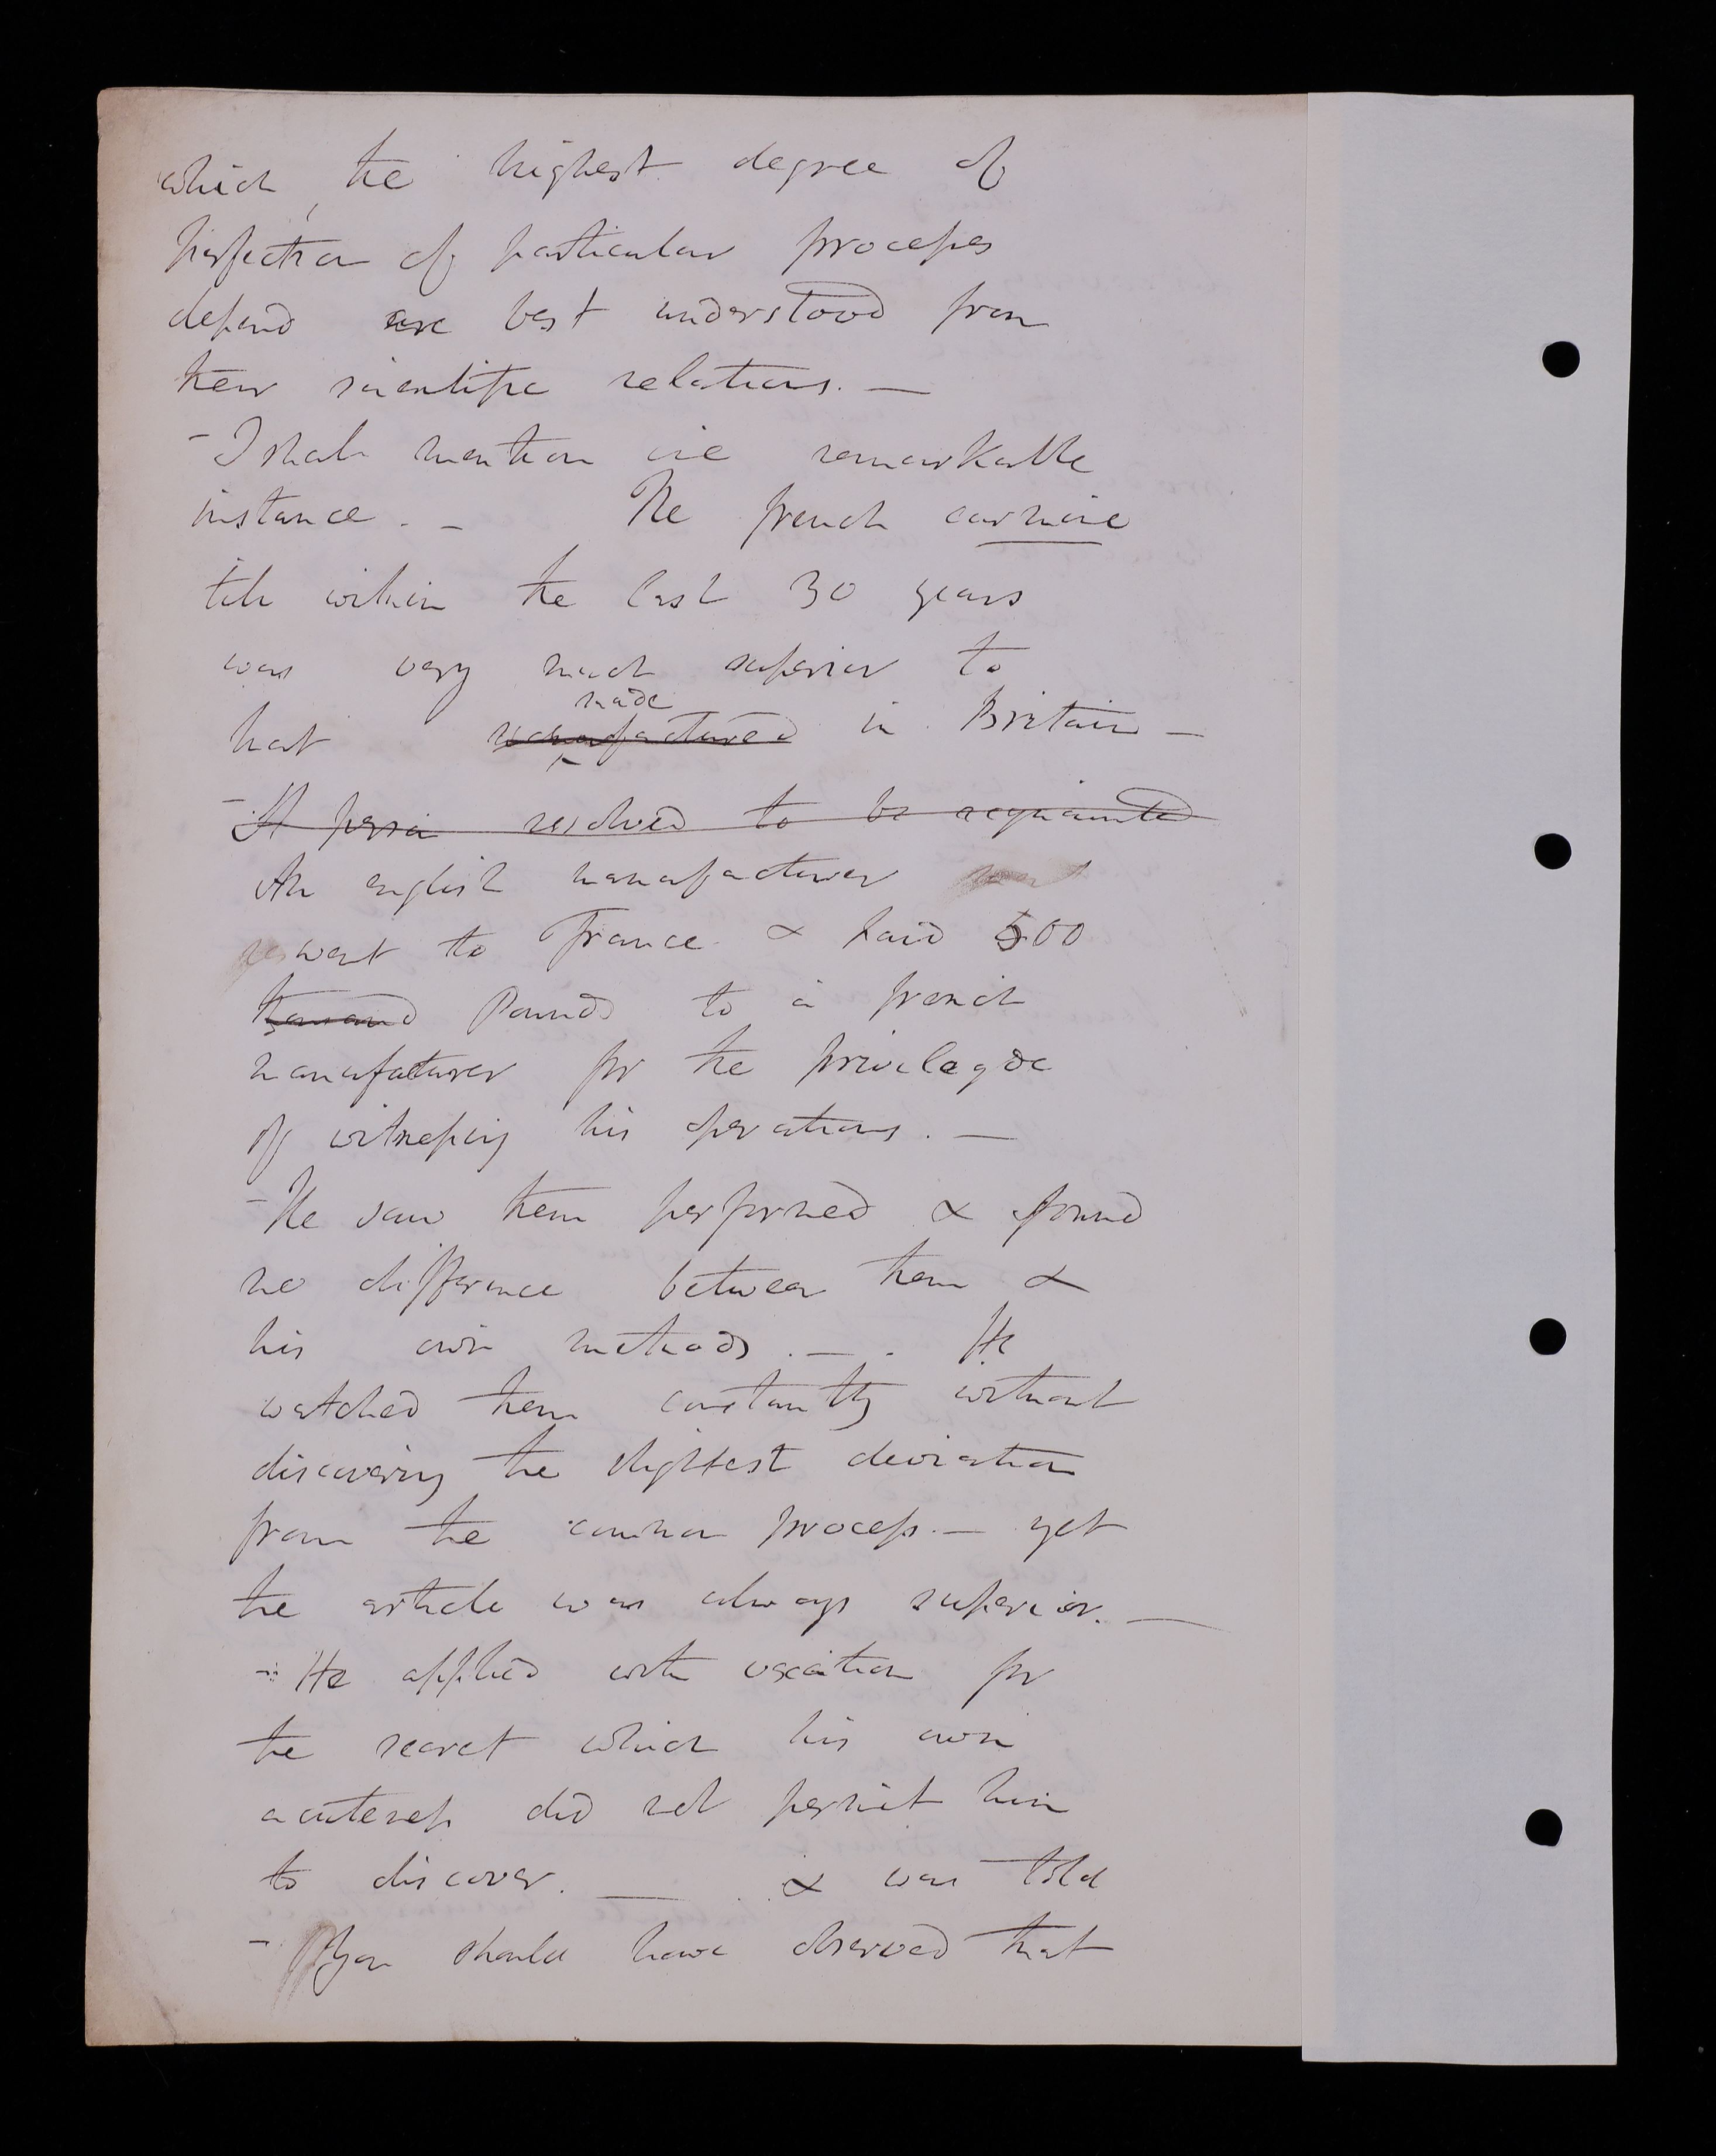 which, the highest degree of
perfection of particular processes
depend are best understood from
their scientific relations. —
- I shall mention one remarkable
instance. - The french carmine
till within the last 30 years
was very much superior to
made
that manufactured in Britain —
- A person resolved to be acquainted
An english manufacturer went
went to France & paid 500
thousand Pounds to a french
manufacturer for the privelage
of witnessing his operations. —
- He saw them performed & found
no difference between them &
his own methods. — . He
watched them constantly without
discovering the slightest deviation
from the common process. — yet
the article was always superior. —
- He applied with vexation for
the secret which his own
acuteness did not permit him
to discover. — & was told
- You should have observed that